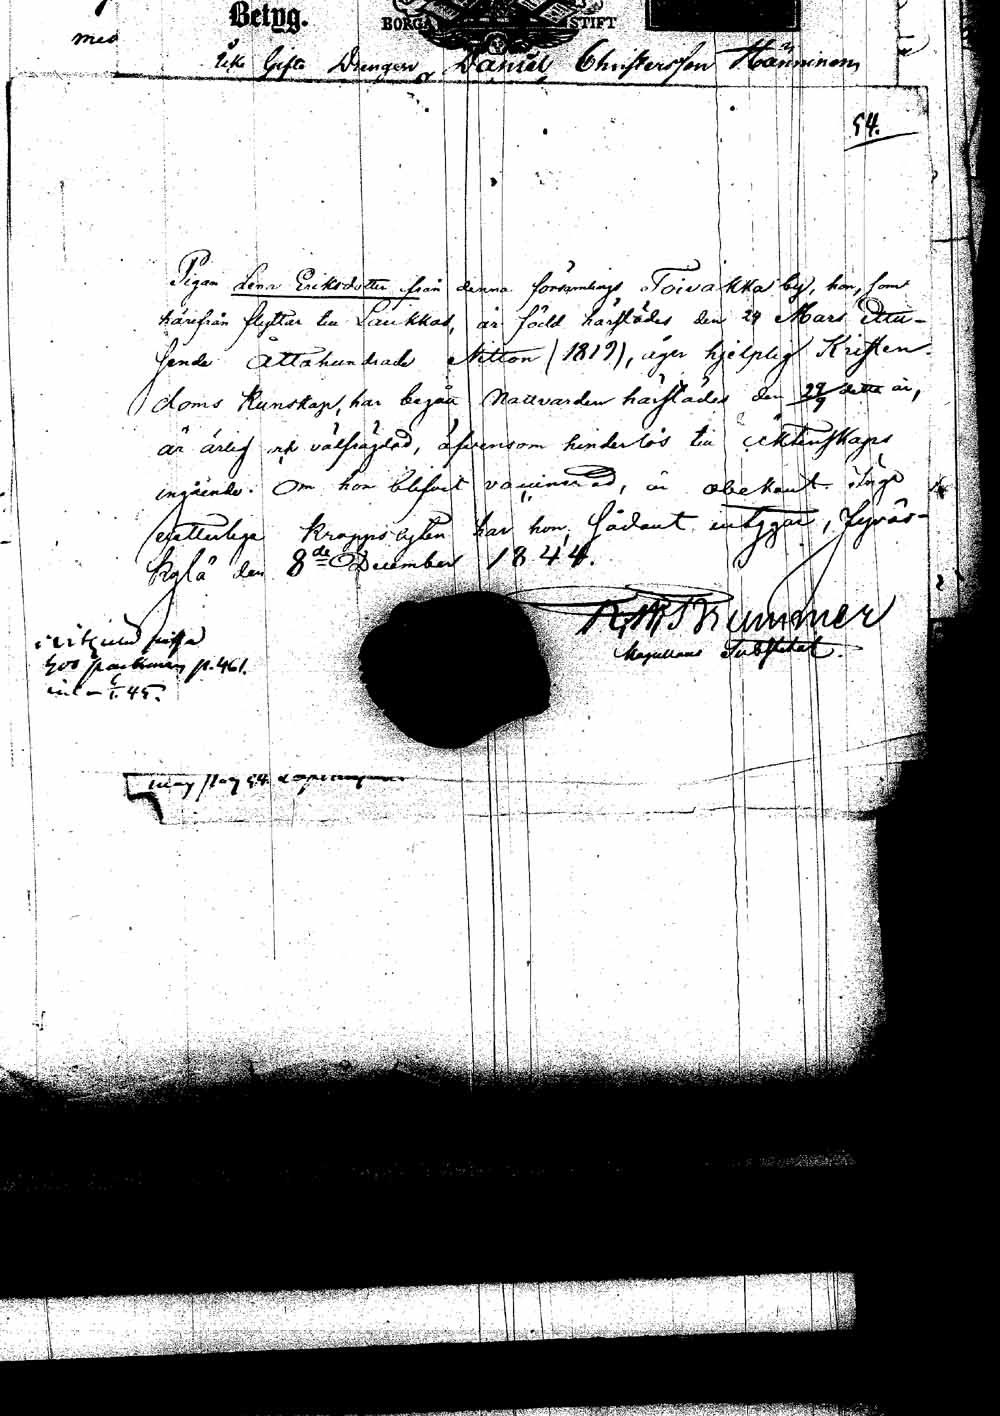 Betyg.
BORGÅ STIFT
med
Gifte Drengen Daniel Christersson Hänninen
54.
Pigan Lena Eriksdotter från denna församlings Toivakka by, hon, som
härifrån flyttar till Laukkas, är född härstädes den 24 Mars Ettu-
sende Åttahundrade Nitton (1819), äger hjelplig Kristen-
doms Kunskap, har begått Nattvarden härstädes den 29/9 detta år,
är ärlig och välfrägdad, äfvensom hinderlös till äktenskaps
ingående. Om hon blifvit vaccinerad, är obekant.
Kroppslyten har hon, sådant intygar, Jyväs-
kylä den 8de December 1844.
Brummer
Substitut.
p. 461.
45.
54.